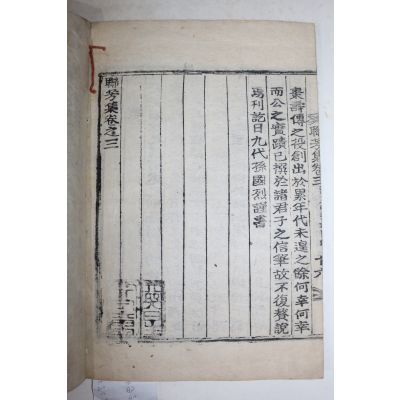 棗壽傳之役創出於累年代未遑之餘何幸何幸
而公之實蹟已撰於諸君子之信筆故不復贅說
焉利訖日九代孫國烈謹書
聯芳集卷之三